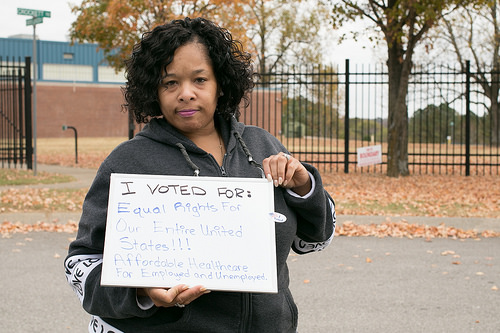 CROCKETT
I VOTED FOR:
Equal Rights For
Our Entire United
States!!!
Affordable Healthcare
For Employed and Unemployed.
LOVE